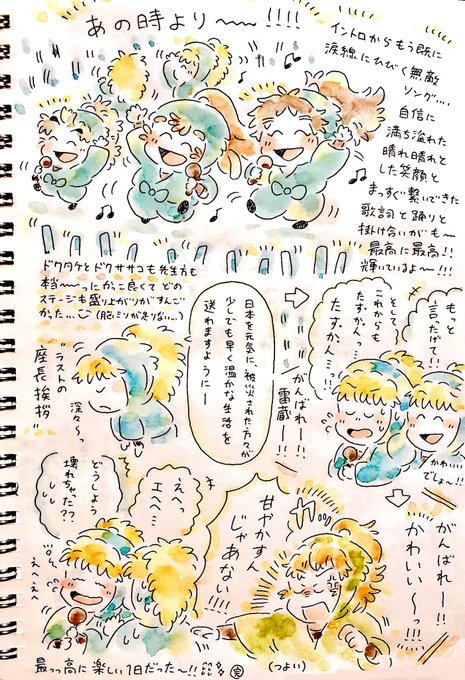 あの時より〜〜!!!!
イントロからもう既に
涙線にひびく無敵
ソング….
自信に
満ち溢れた
晴れ晴れと
した笑顔と
まっすぐ繋いできた
歌詞と踊りと
掛け合いがも〜
最高に最高!!
輝いているよ〜!!!
ドクタケとドクササコも先生方も
本〜〜っかっこ良くて どの
ステージも盛り上がりがすんご
かった…
(脳ミソが足りない…)
もっと
言たげて!!
そして
これからも
たすかんっ…
たすかん…!!
がんばれー!!
雷蔵ー!!
かわいい
でしょー!!
日本を元気に、被災された方々が
少しでも早く温かな生活を
送れますようにー
"ラストの
座長挨拶"
深々〜っ
がんばれー!!
かわいい〜っ!!!
カッ
甘やかすん
じゃあない!!!
(つよい)
えへ
エヘへ…
どうしよう
壊れちゃった??
えへえへ
最っっ高に楽しい1日だった〜!!
完